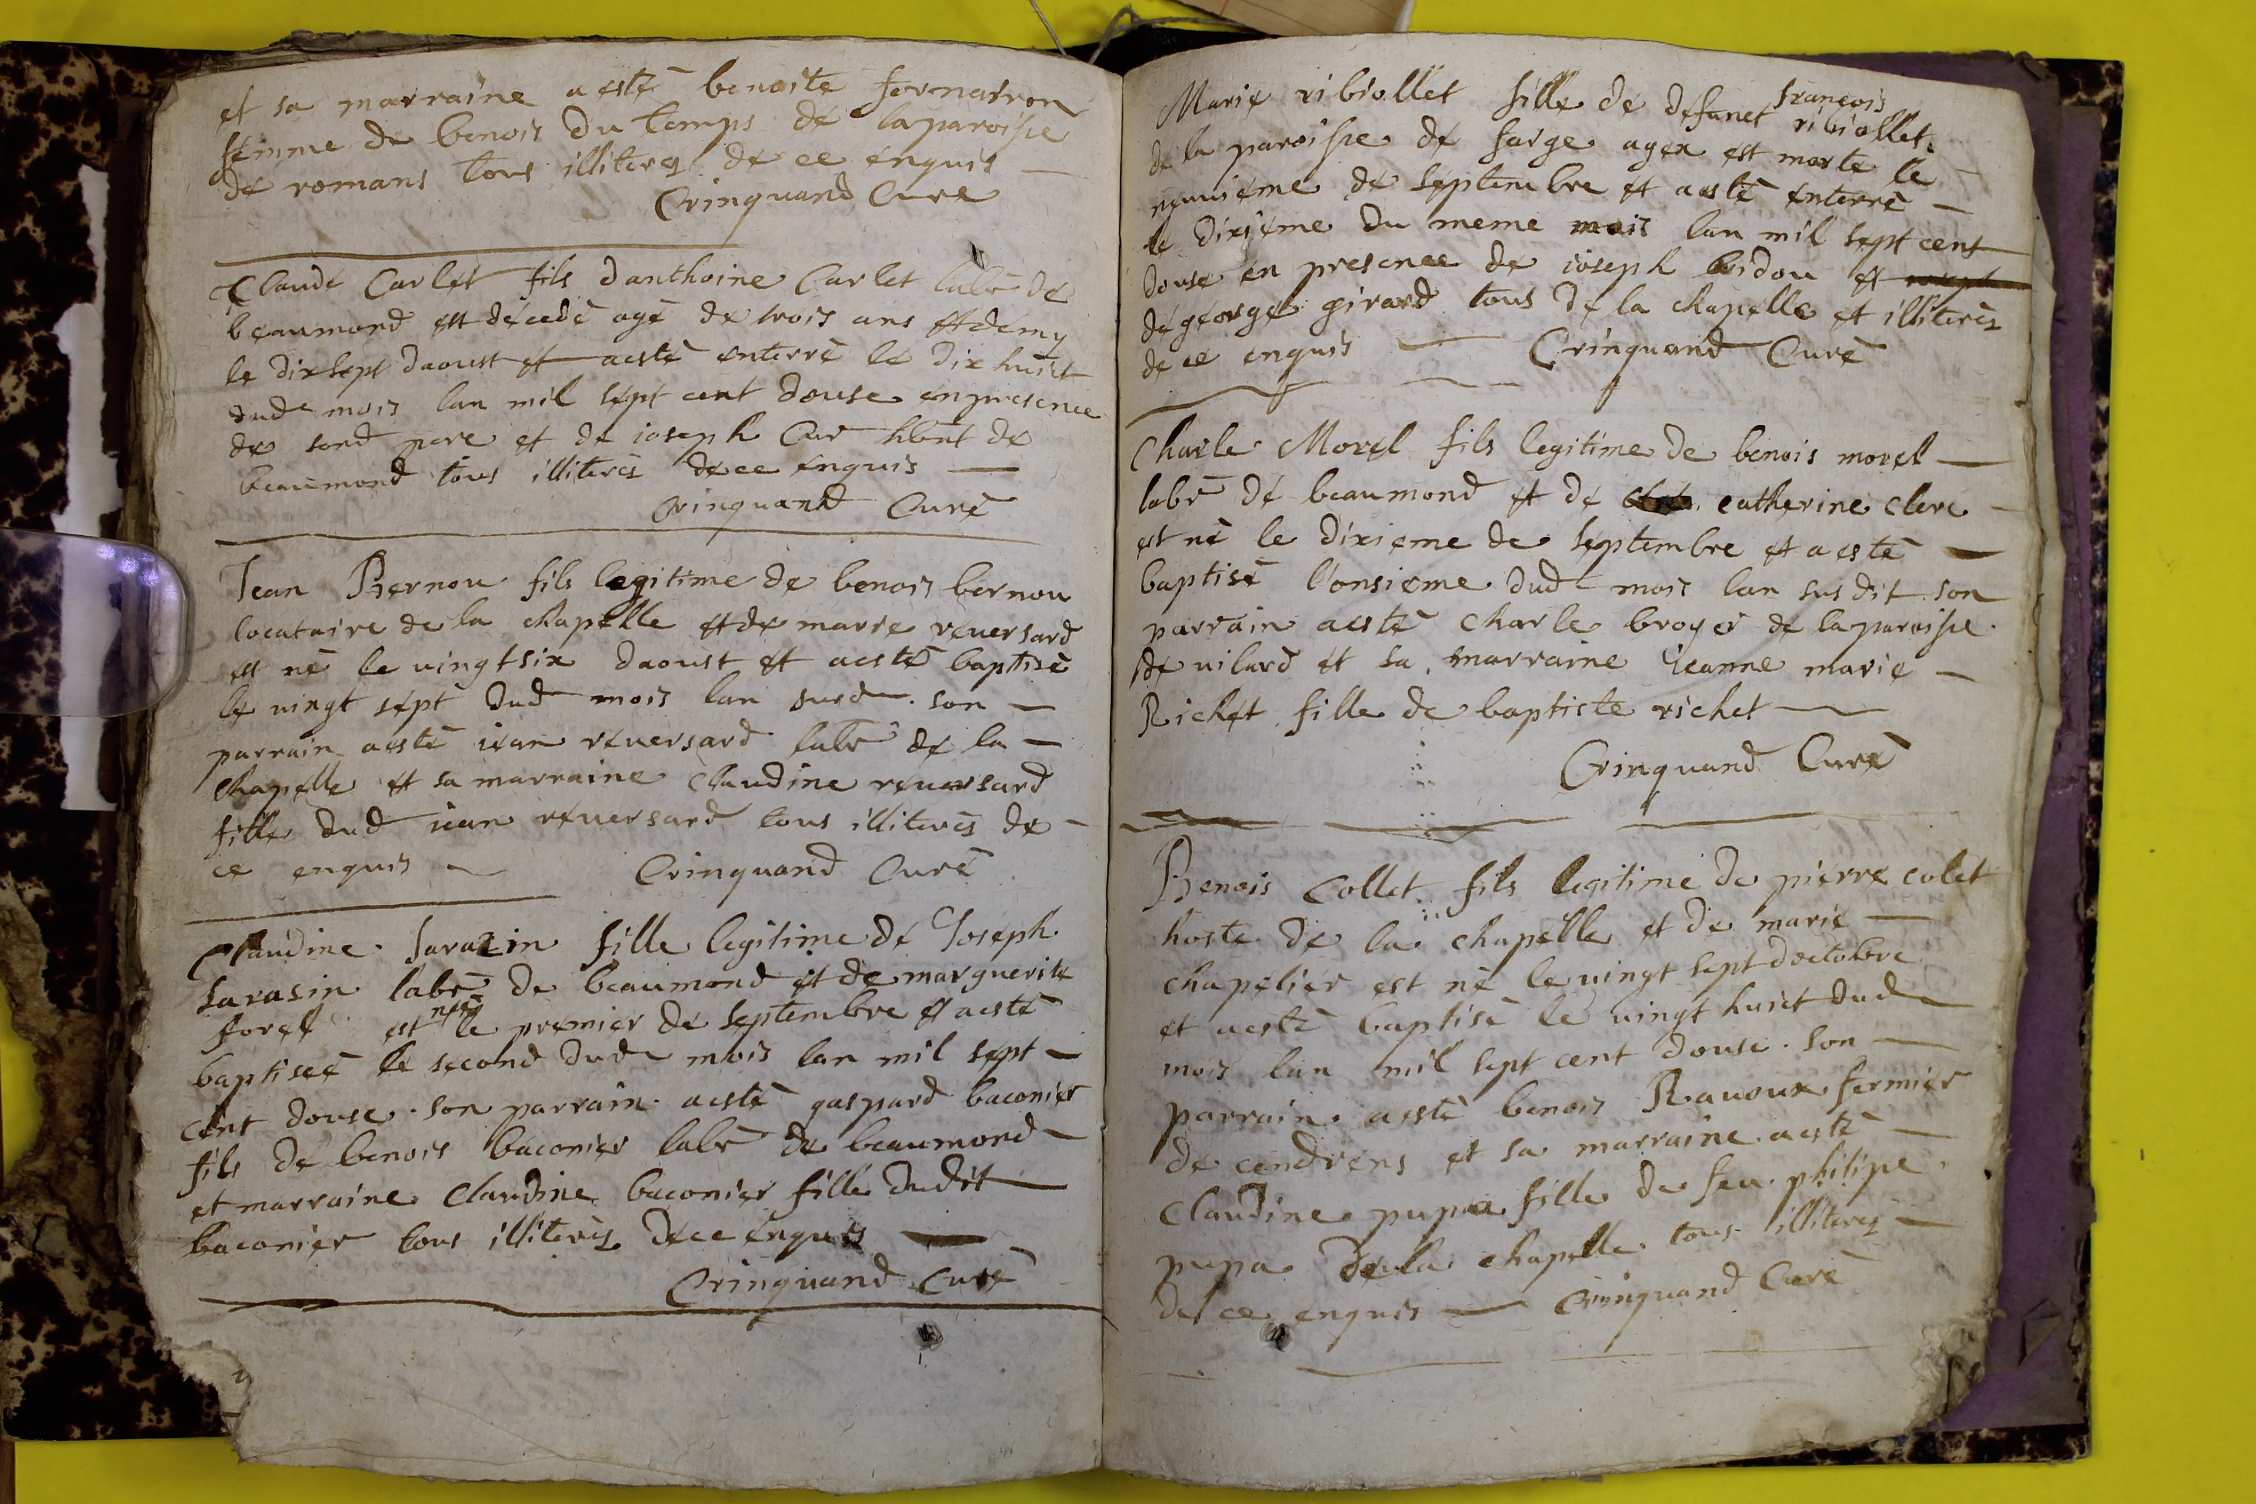 et sa marraine a esté benoite fornarron
femme de benois du temps de la paroisse
de romans tous illiterés de ce enquis
Crinquand Curé
Claude Carlet fils danthoine Carlet labr de
beaumond est décedé agé de trois ans et demy
le dixsept daoust et a esté enterré le dix huict
dud mois lan mil sept cent douse en presence
de sond pere et de joseph Cur hbnt de
beaumond tous illiterés de ce enquis
Crinquand Curé
Jean Bernou fils legitime de benois bernou
locataire de la chapelle et de marie reuersard
est né le uingtsix daoust et a esté baptisé
le uingt sept dud mois lan susd. son
parrain a esté jean reuersard labr de la
chapelle et sa marraine claudine reuersard
fille dud jean reuersard tous illiterés de
ce enquis Crinquand Curé
Claudine Sarazin fille legitime de Joseph
Sarasin labr de beaumond et de marguerite
forel est née le premier de septembre et a esté
baptiseé le second dud mois lan mil sept
cent douse. son parrain a esté gaspard baconier
fils de benois baconier labr de beaumond
et marraine Claudine baconier fille dudit
baconier tous illiterés de ce enquis
Crinquand Curé
Marie ribiollet fille de defunct françois ribiollet
de la paroisse de farge ageé est morte le
neuuieme de septembre et a esté enterré
le dixieme du meme mois lan mil sept cent
douse en presence de joseph bridou et
de george girard tous de la chapelle et illiterés
de ce enquis Crinquand Curé
Charle Morel fils legitime de benois morel
labr de beaumond et de catherine clerc
est né le dixieme de septembre et a esté
baptisé l'onsieme dud mois lan sus dit son
parrain a esté charle broyer de la paroisse
de uilard et sa marraine jeanne marie
Richet fille de baptiste richet
Crinquand Curé
Benois Collet fils legitime de pierre colet
hoste de la chapelle et de marie
chapelier est né le uingt sept doctobre
et a esté baptisé le uingt huict dud
mois lan mil sept cent douse. son
parrain a esté benois Rauoux fermier
de cendrens et sa marraine a esté
Claudine pupa fille de feu philipe
pupa de la chapelle tous illiterés
de ce enquis Crinquand Curé